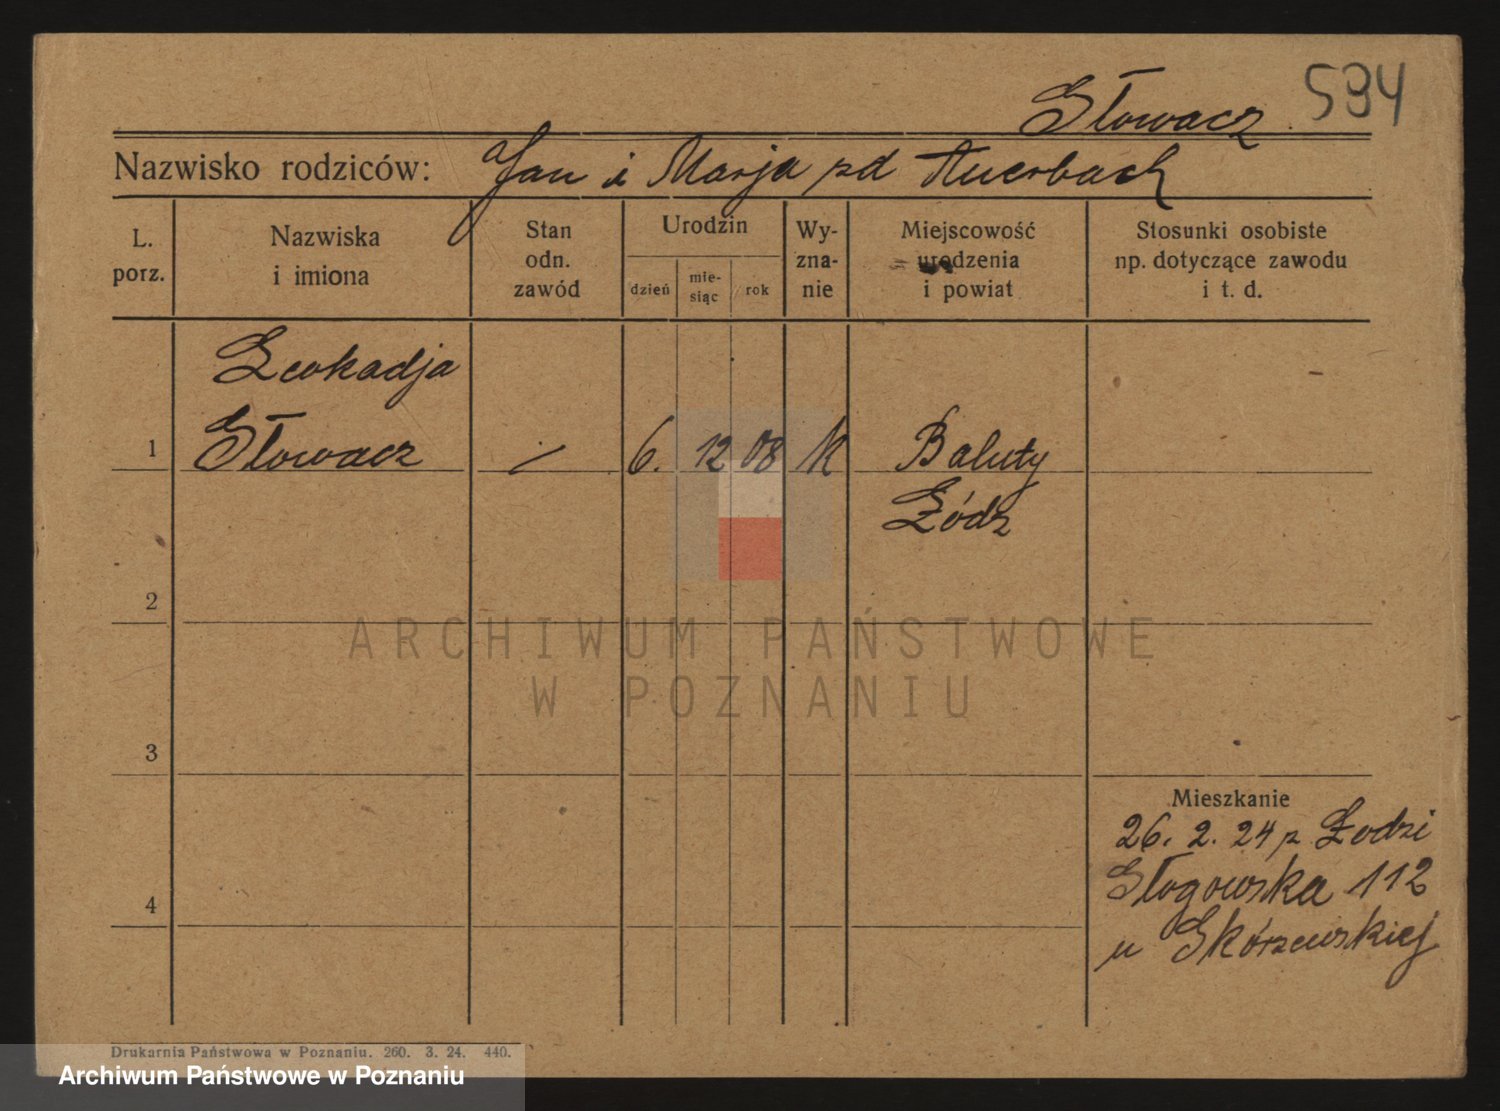 Słowacz 534
Nazwisko rodziców: Jan i Marja zd Auerbach
L. porz.
Nazwiska i imiona
Stan odn. zawód
Urodzin
dzień
mie-siąc
rok
Wy-zna-nie
Miejscowość urodzenia i powiat
Stosunki osobiste np. dotyczące zawodu i t. d.
Leokadja
1 Słowacz / 6. 12 08 K Baluty
Łódz
2
3
4
Mieszkanie
26. 2. 24 z Łodzi
Głogowska 112
u Skórzewskiej
ARCHIWUM PAŃSTWOWE
W POZNANIU
Drukarnia Państwowa w Poznaniu. 260. 3. 24. 440.
Archiwum Państwowe w Poznaniu